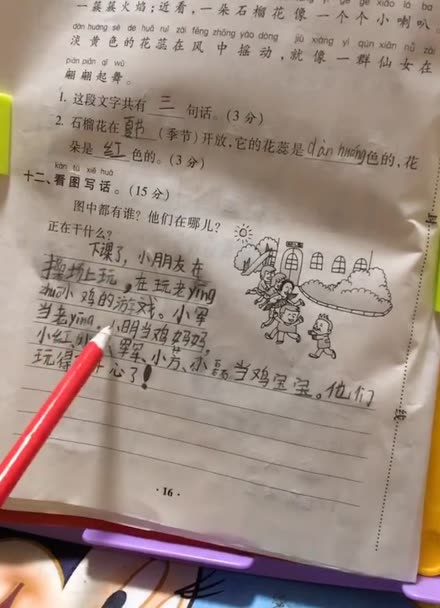 一簇簇火焰；近看，一朵石榴花像一个个小喇叭
dàn huáng sè de huā ruǐ zài fēng zhōng yáo dòng jiù xiàng yì qún xiān nǚ zài
淡黄色的花蕊在风中摇动，就像一群仙女在
piān piān qǐ wǔ
翩翩起舞。
1. 这段文字共有 三 句话。(3分)
2. 石榴花在 夏节 (季节)开放，它的花蕊是 dàn huáng 色的，花
朵是 红 色的。(3分)
kàn tú xiě huà
十二、看图写话。(15分)
图中都有谁？他们在哪儿？
正在干什么？
下课了，小朋友在
操场上玩，在玩老yīng
zhuō小鸡的游戏。小军
当老yīng，小明当鸡妈妈，
小红、 军军、小芳、小磊当鸡宝宝。他们
玩得 心了！
线
·16·